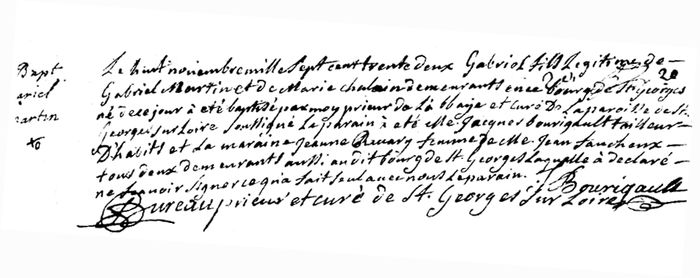 Bapt
Le huit novembre mille Sept cent trente deux Gabriel fils Legitime de
Gabriel Martin et de Marie chalain demeurants en ce bourg de St Georges
né de ce jour à été baptisé par moy prieur de L'abbaje et Curé De la paroisse de St
Georges sur Loire soussigné Le parain à été Me Jacques Bourigault tailleur
D'habits et La maraine Jeanne femme de Me Jean faucheux
tous deux demeurants aussi au dit bourg de St Georges Laquelle à déclaré
ne sçavoir signer ce qu'a fait seul avec nous Le parain. J Bourigault
Bureau prieur et curé de St. Georges sur Loire
ariel
artin
20